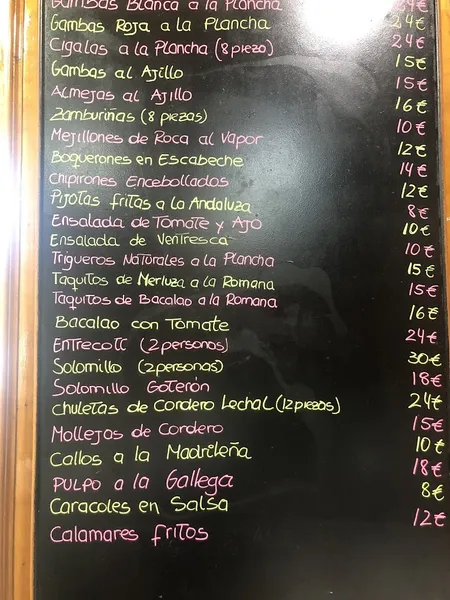 Gambas Blanca a la Plancha 24€
Gambas Roja a la Plancha 24€
Cigalas a la Plancha (8 piezo) 24€
Gambas al Ajillo 15€
Almejas al Ajillo 15€
Zamburiñas (8 piezas) 16€
Mejillones de Roca al Vapor 10€
Boquerones en Escabeche 12€
Chipirones Encebollados 14€
Pijotas fritas a la Andaluza 12€
Ensalada de Tomate y Ajo 8€
Ensalada de Ventresca 10€
Trigueros Naturales a la Plancha 10€
Taquitos de Merluza a la Romana 15€
Taquitos de Bacalao a la Romana 15€
Bacalao con Tomate 16€
Entrecott (2 personas) 24€
Solomillo (2personas) 30€
Solomillo Goterón 18€
Chuletas de Cordero Lechal (12 piezas) 24€
Mollejas de Cordero 15€
Callos a la Madrileña 10€
Pulpo a la Gallega 18€
Caracoles en Salsa 8€
Calamares fritos 12€